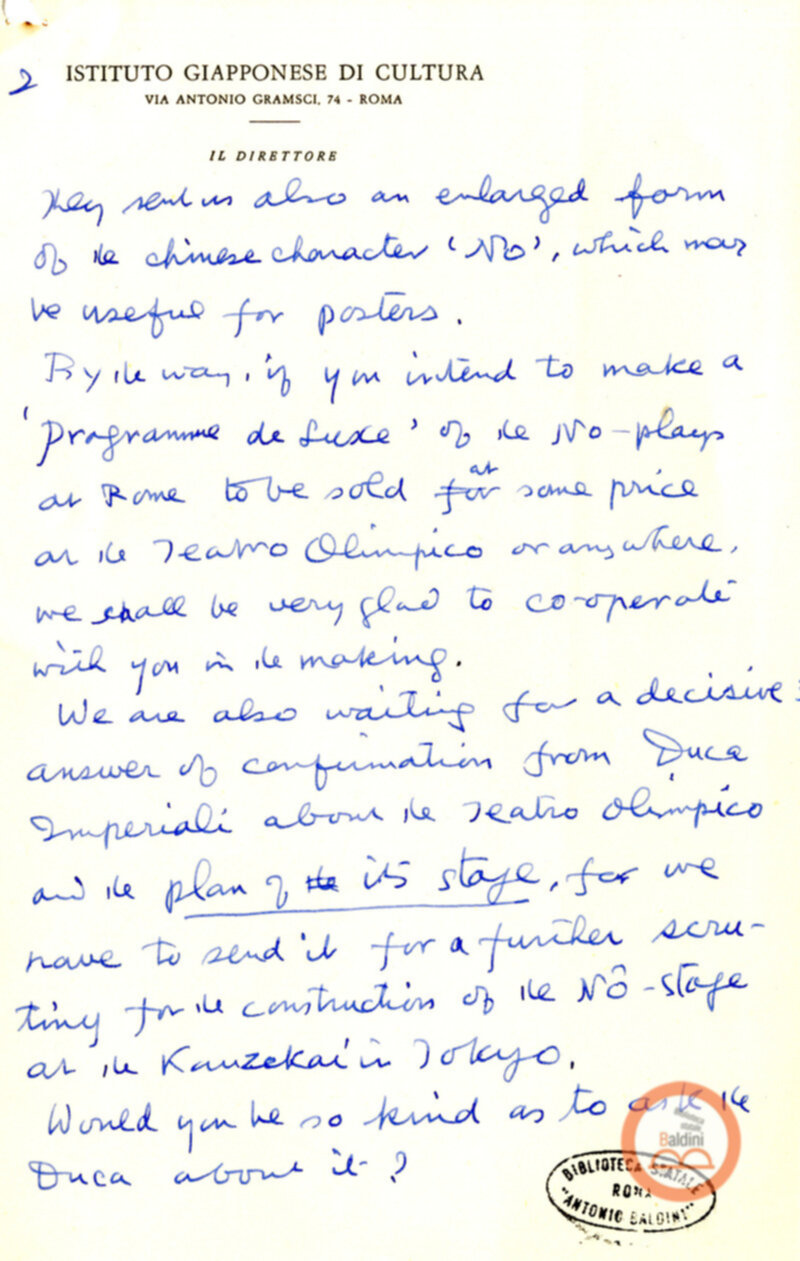 2
ISTITUTO GIAPPONESE DI CULTURA
VIA ANTONIO GRAMSCI, 74 - ROMA
IL DIRETTORE
They sent us also an enlarged form
of the chinese character 'No', which may
be useful for posters.
By the way, if you intend to make a
'programme de Luxe' of the No-plays
at Rome to be sold for at some price
at the Teatro Olimpico or anywhere,
we shall be very glad to co-operate
with you in the making.
We are also waiting for a decisive
answer of confirmation from Duca
Imperiali about the Teatro Olimpico
and the plan of the its stage, for we
have to send it for a further scru-
tiny for the construction of the Nô-stage
at the Kanzekai in Tokyo.
Would you be so kind as to ask the
Duca about it?
Biblioteca
statale
Baldini
BIBLIOTECA STATALE
ROMA
"ANTONIO BALDINI"